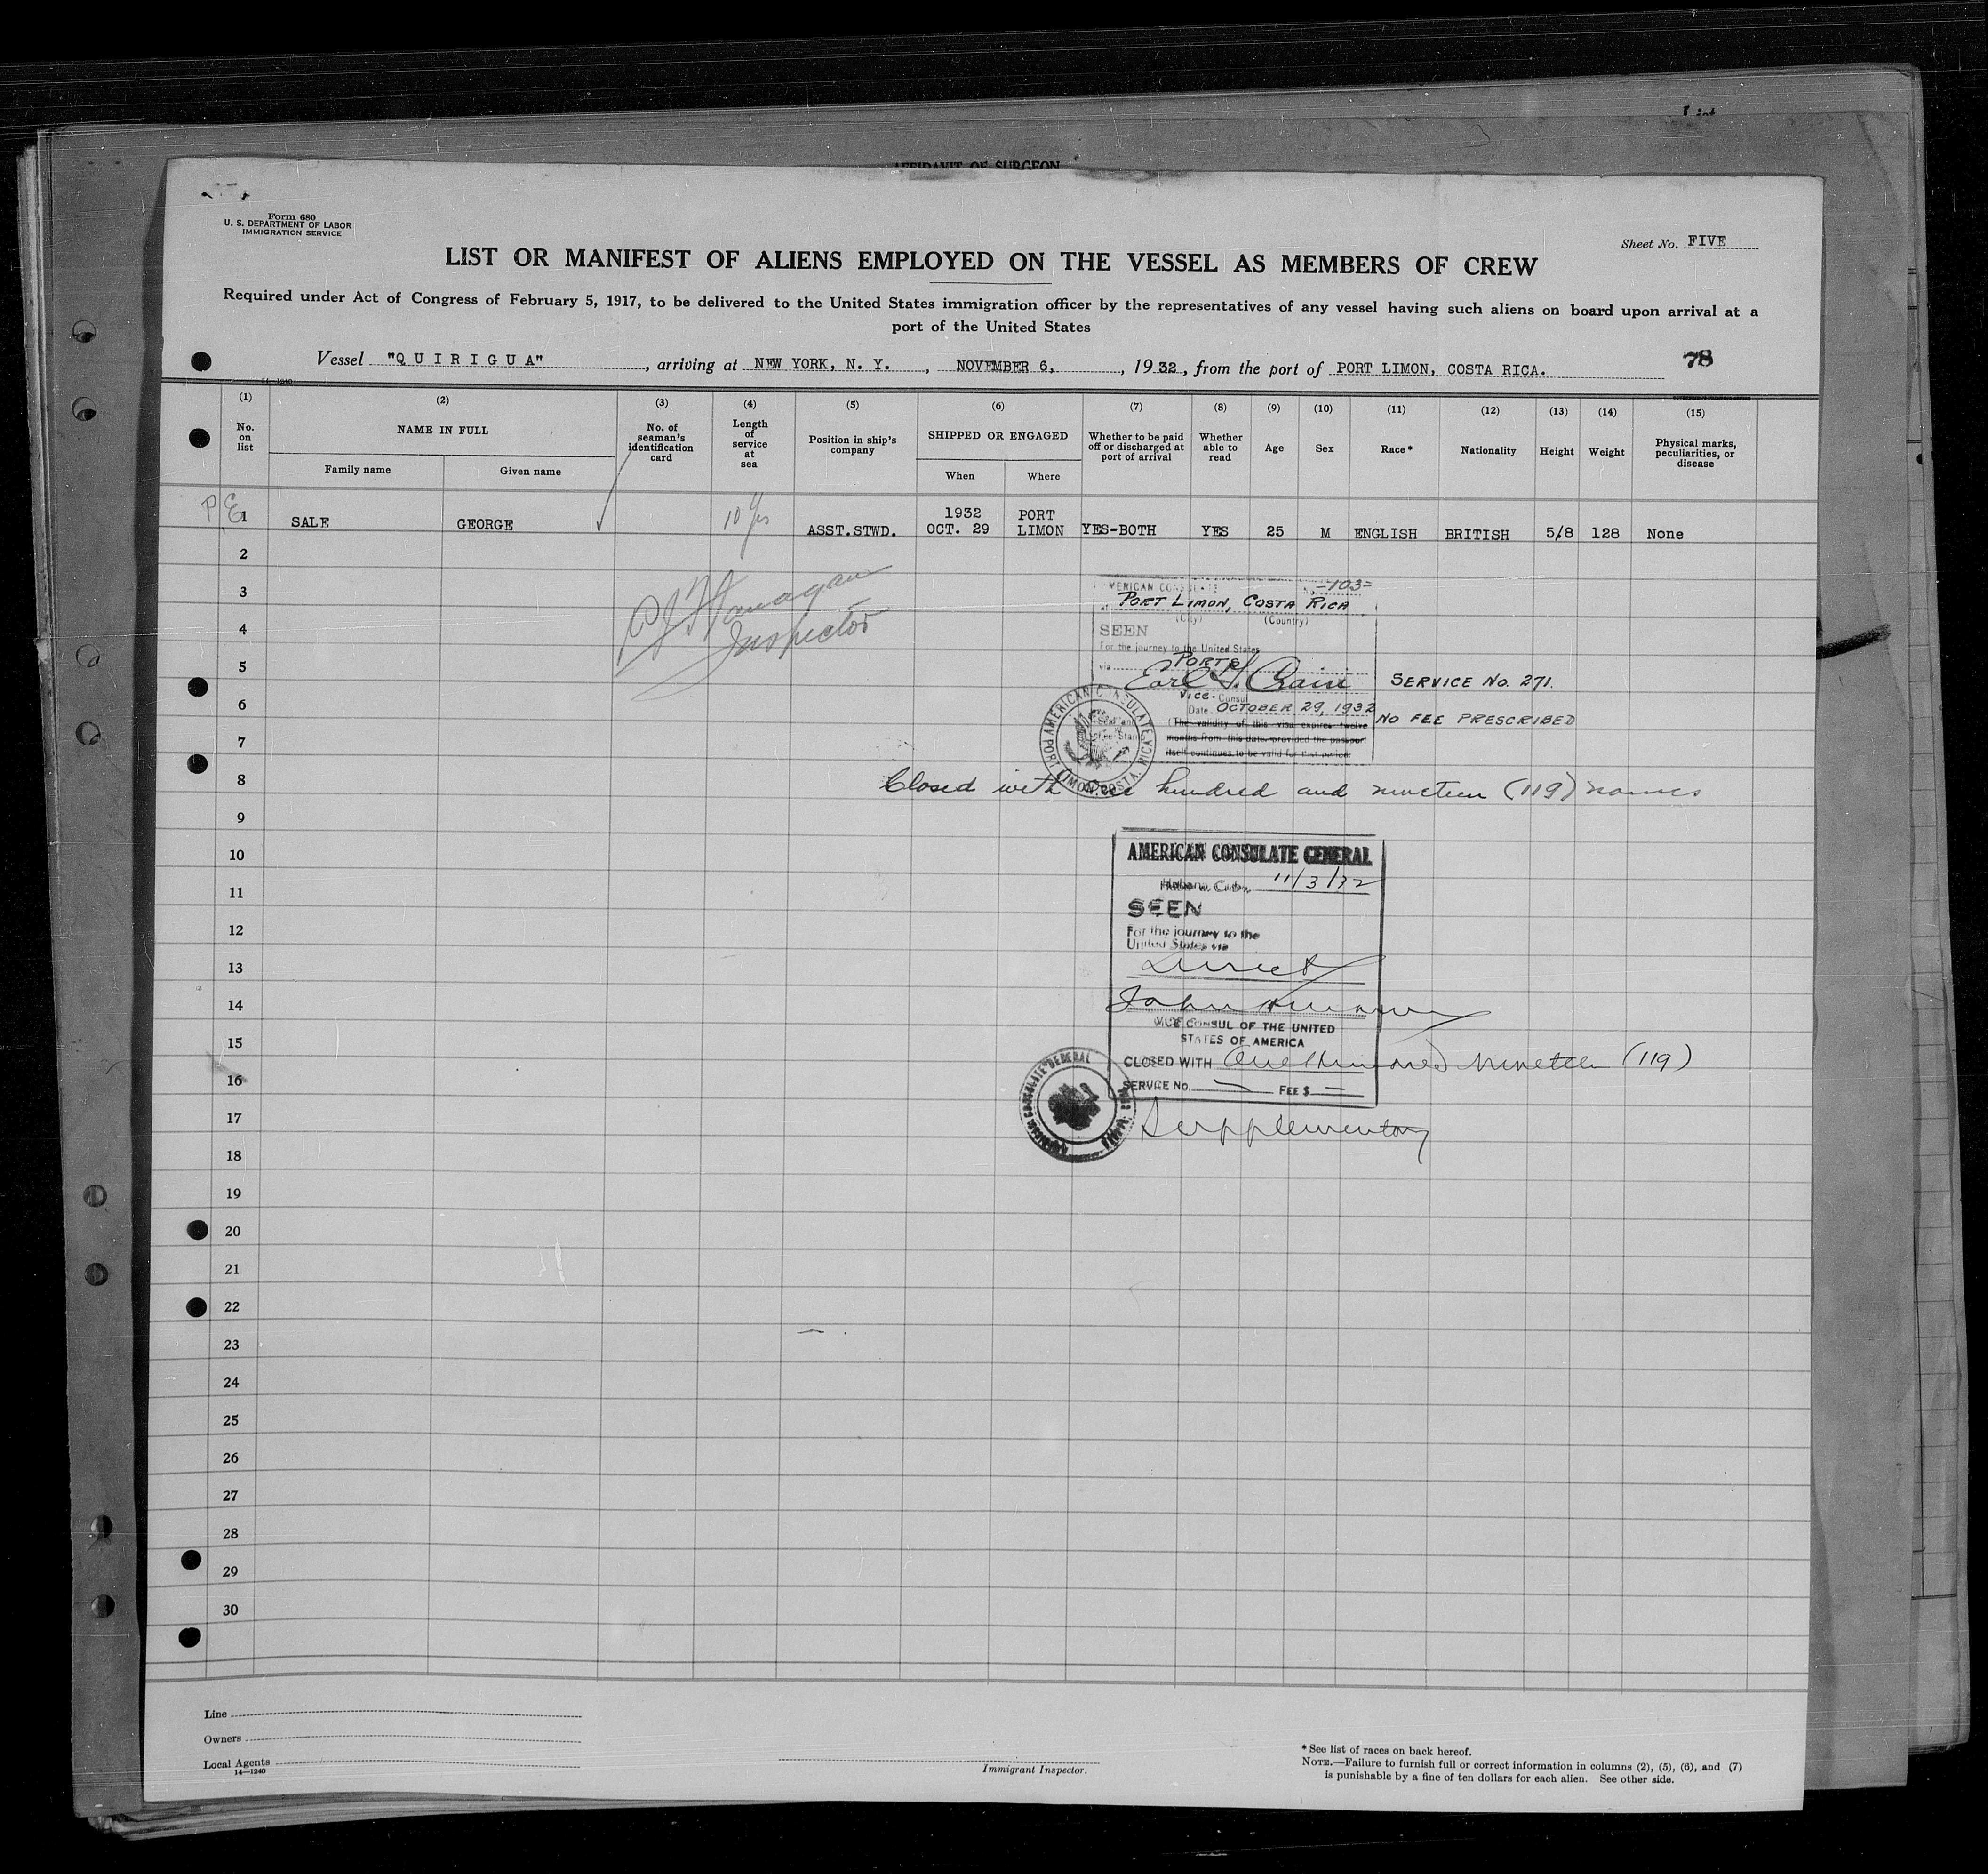 AFFIDAVIT OF SURGEON
List
Form 680
U. S. DEPARTMENT OF LABOR
IMMIGRATION SERVICE
Sheet No. FIVE
LIST OR MANIFEST OF ALIENS EMPLOYED ON THE VESSEL AS MEMBERS OF CREW
Required under Act of Congress of February 5, 1917, to be delivered to the United States immigration officer by the representatives of any vessel having such aliens on board upon arrival at a
port of the United States
Vessel "QUIRIGUA", arriving at NEW YORK, N. Y., NOVEMBER 6, , 1932, from the port of PORT LIMON, COSTA RICA.
78
14-1240
(1) (2) (3) (4) (5) (6) (7) (8) (9) (10) (11) (12) (13) (14) (15)
No. on list
NAME IN FULL
Family name Given name
No. of seaman's identification card
Length of service at sea
Position in ship's company
SHIPPED OR ENGAGED
When Where
Whether to be paid off or discharged at port of arrival
Whether able to read
Age
Sex
Race*
Nationality
Height
Weight
Physical marks, peculiarities, or disease
PE 1 SALE GEORGE 10 yrs ASST.STWD. 1932 OCT. 29 PORT LIMON YES-BOTH YES 25 M ENGLISH BRITISH 5/8 128 None
2
3
4
5
6
7
8
9
10
11
12
13
14
15
16
17
18
19
20
21
22
23
24
25
26
27
28
29
30
Flanagan
Inspector
AMERICAN CONSULATE No. -103-
at PORT LIMON, COSTA RICA
(City) (Country)
SEEN
For the journey to the United States
via PORTS
Earl G. Crain
Vice. Consul
Date OCTOBER 29, 1932
(The validity of this visa expires twelve
months from this date, provided the passport
itself continues to be valid for that period.
SERVICE No. 271.
NO FEE PRESCRIBED
AMERICAN CONSULATE PORT LIMON, COSTA RICA
Closed with One hundred and nineteen (119) names
AMERICAN CONSULATE GENERAL
Habana, Cuba, 11/3/32
SEEN
For the journey to the
United States via
Direct
John
VICE CONSUL OF THE UNITED
STATES OF AMERICA
CLOSED WITH One Hundred Nineteen (119)
SERVICE No. — FEE $ —
Supplementary
Line
Owners
Local Agents
14—1240
Immigrant Inspector.
* See list of races on back hereof.
NOTE.—Failure to furnish full or correct information in columns (2), (5), (6), and (7)
is punishable by a fine of ten dollars for each alien. See other side.